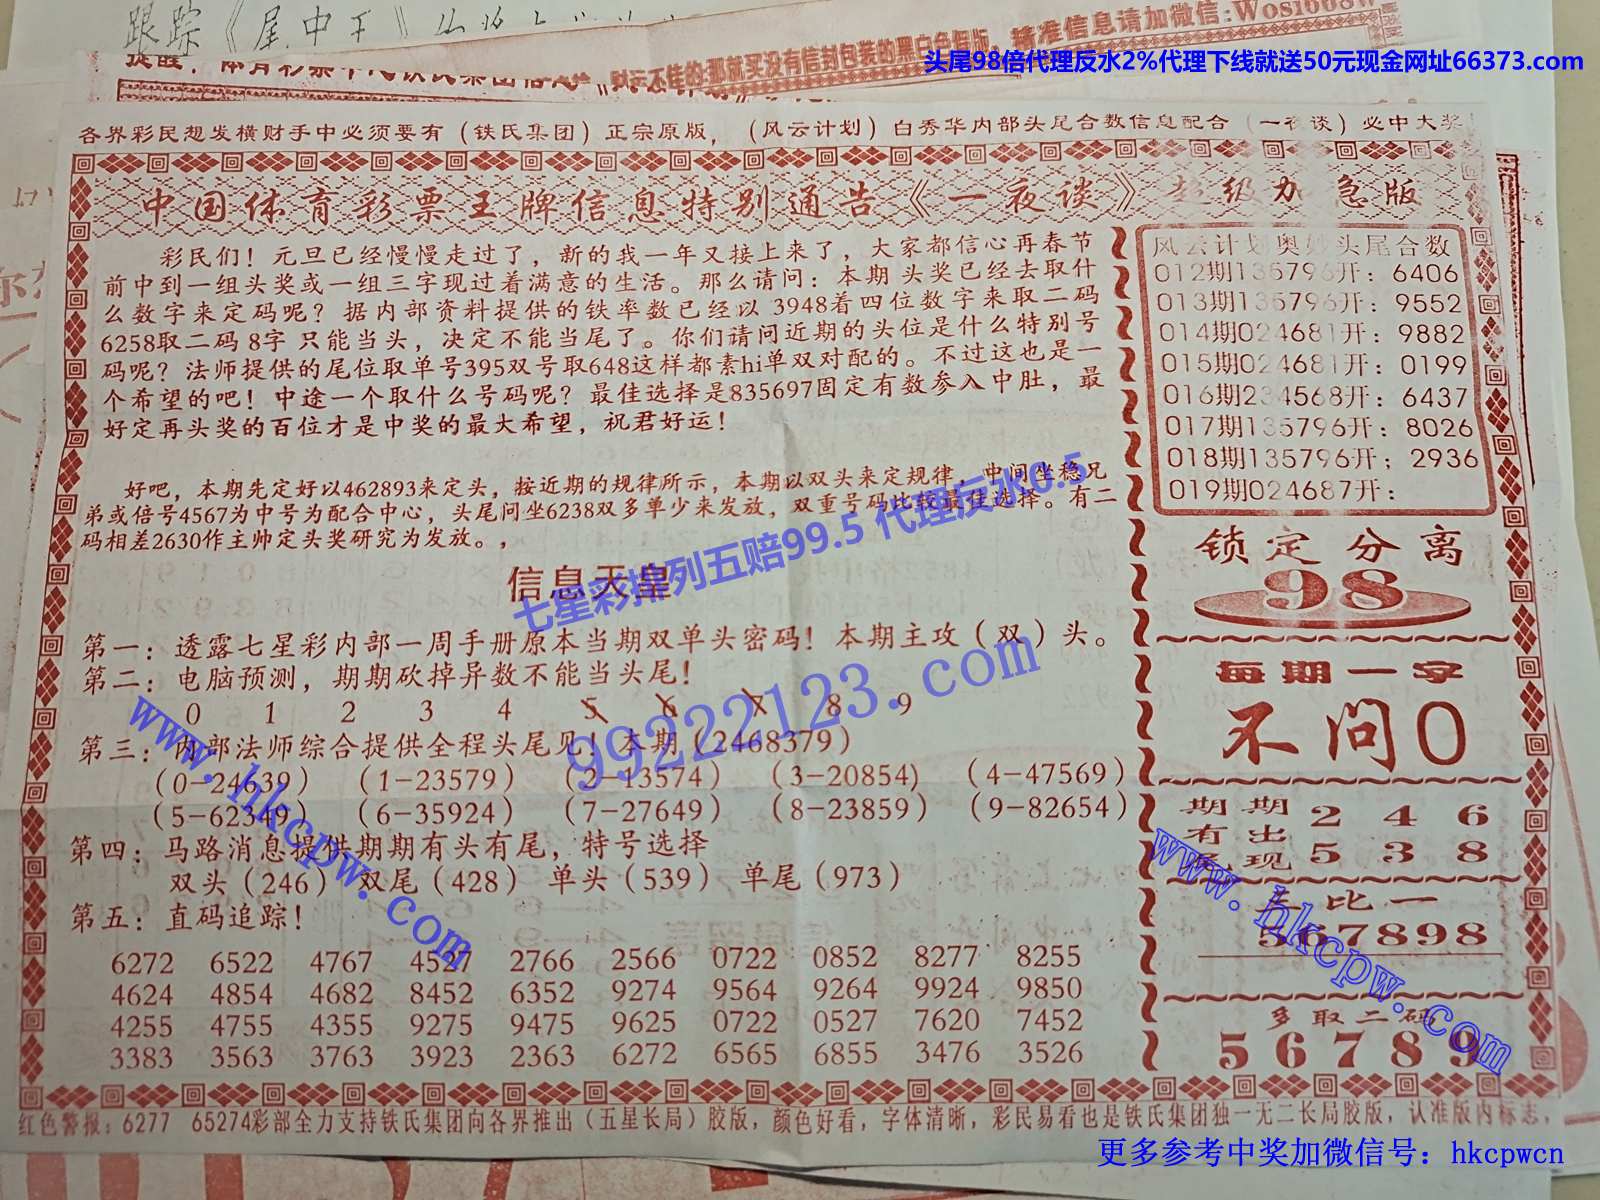 跟踪《尾中王》
精准信息请加微信:W081668W
头尾98倍代理反水2%代理下线就送50元现金网址66373.com
各界彩民想发横财手中必须要有（铁氏集团）正宗原版，（风云计划）白秀华内部头尾合数信息配合（一夜谈）必中大奖！
中国体育彩票王牌信息特别通告《一夜谈》超级加急版
彩民们！元旦已经慢慢走过了，新的我一年又接上来了，大家都信心再春节
前中到一组头奖或一组三字现过着满意的生活。那么请问：本期 头奖已经去取什
么数字来定码呢？据内部资料提供的铁率数已经以 3948着四位数字来取二码
6258取二码 8字 只能当头，决定不能当尾了。你们请问近期的头位是什么特别号
码呢？法师提供的尾位取单号395双号取648这样都素hi单双对配的。不过这也是一
个希望的吧！中途一个取什么号码呢？最佳选择是835697固定有数参入中肚，最
好定再头奖的百位才是中奖的最大希望，祝君好运！
好吧，本期先定好以462893来定头，按近期的规律所示，本期以双头来定规律，中间坐稳兄
弟或倍号4567为中号为配合中心，头尾问坐6238双多单少来发放，双重号码比较最佳选择。有二
码相差2630作主帅定头奖研究为发放。，
七星彩排列五赔99.5 代理反水0.5
信息天皇
第一：透露七星彩内部一周手册原本当期双单头密码！本期主攻（双）头。
第二：电脑预测，期期砍掉异数不能当头尾！
0 1 2 3 4 5 6 7 8 9
第三：内部法师综合提供全程头尾见！本期（2468379）
（0-24639）（1-23579）（2-13574）（3-20854）（4-47569）
（5-62349）（6-35924）（7-27649）（8-23859）（9-82654）
第四：马路消息提供期期有头有尾，特号选择
双头（246） 双尾（428） 单头（539） 单尾（973）
第五：直码追踪！
6272 6522 4767 4527 2766 2566 0722 0852 8277 8255
4624 4854 4682 8452 6352 9274 9564 9264 9924 9850
4255 4755 4355 9275 9475 9625 0722 0527 7620 7452
3383 3563 3763 3923 2363 6272 6565 6855 3476 3526
风云计划奥妙头尾合数
012期135796开：6406
013期135796开：9552
014期024681开：9882
015期024681开：0199
016期234568开：6437
017期135796开：8026
018期135796开；2936
019期024687开：
锁定分离
98
每期一字
不问0
期期 2 4 6
有出
现 5 3 8
比一
567898
多取二码
56789
99222123.com
www.hkcpw.com
www.hkcpw.com
红色警报：6277 65274彩部全力支持铁氏集团向各界推出（五星长局）胶版，颜色好看，字体清晰，彩民易看也是铁氏集团独一无二长局胶版，认准版内标志，
更多参考中奖加微信号：hkcpwcn